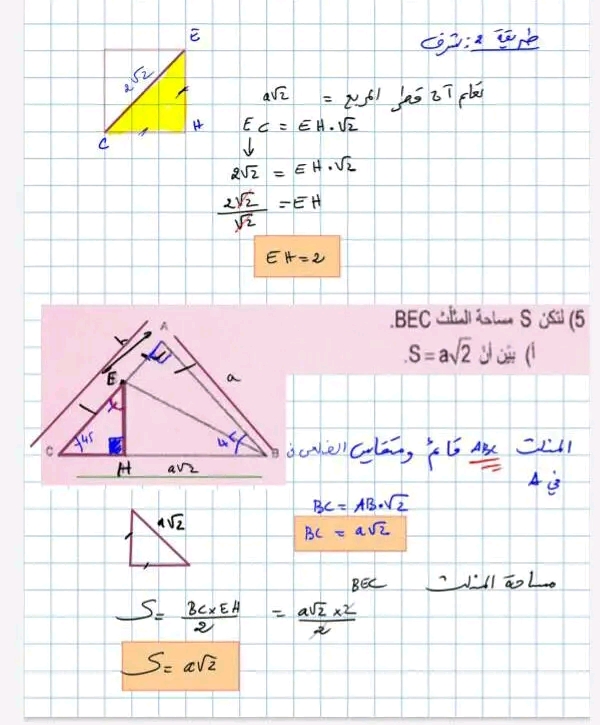 طريقة 2: شرف
E
2√2
C
H
نعلم أن قطر المربع = a√2
EC = EH·√2
↓
2√2 = EH·√2
2√2/√2 = EH
EH = 2
5) لتكن S مساحة المثلث BEC.
أ) بيّن أنّ S = a√2.
A
b
a
E
45
45
C
H
B
a√2
المثلث ABC قائم ومتقايس الضلعين في
في A
BC = AB·√2
BC = a√2
a√2
مساحة المثلث BEC
S = BC×EH/2 = a√2×2/2
S = a√2